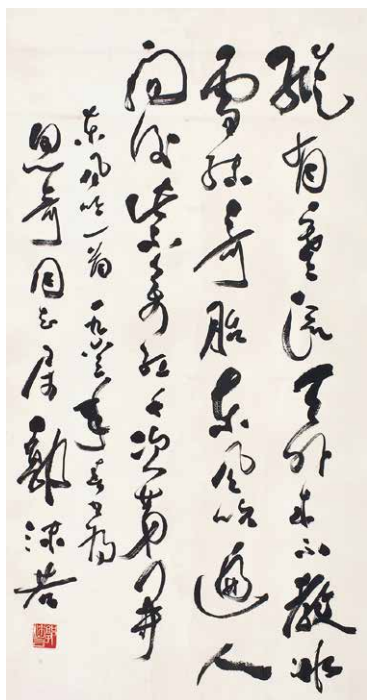 纵有寒流天外来不教冰
雪结奇胎东风吹遍人
间后紫万红千次第开
东风吟一首 一九六三年春日为
思奇同志属 郭沫若